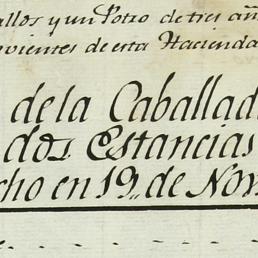 allos y un Potro de tres añ
vientes de esta Hacienda
de la Caballad
dos Estancias
cho en 19,, de Nov